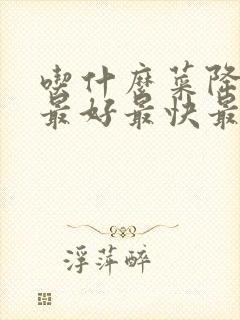 喫什麼菜降
最好最快最
浮萍醉